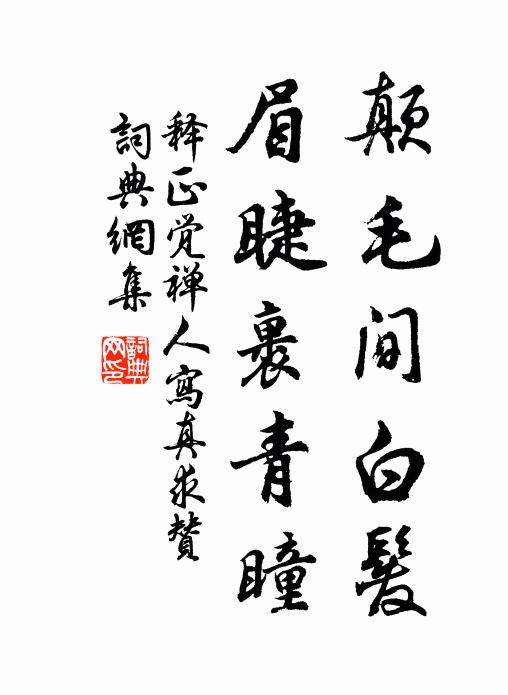 颠毛间白髮
眉睫裹青瞳
释正觉禅人寫真求赞
詞典網集
詞典网印